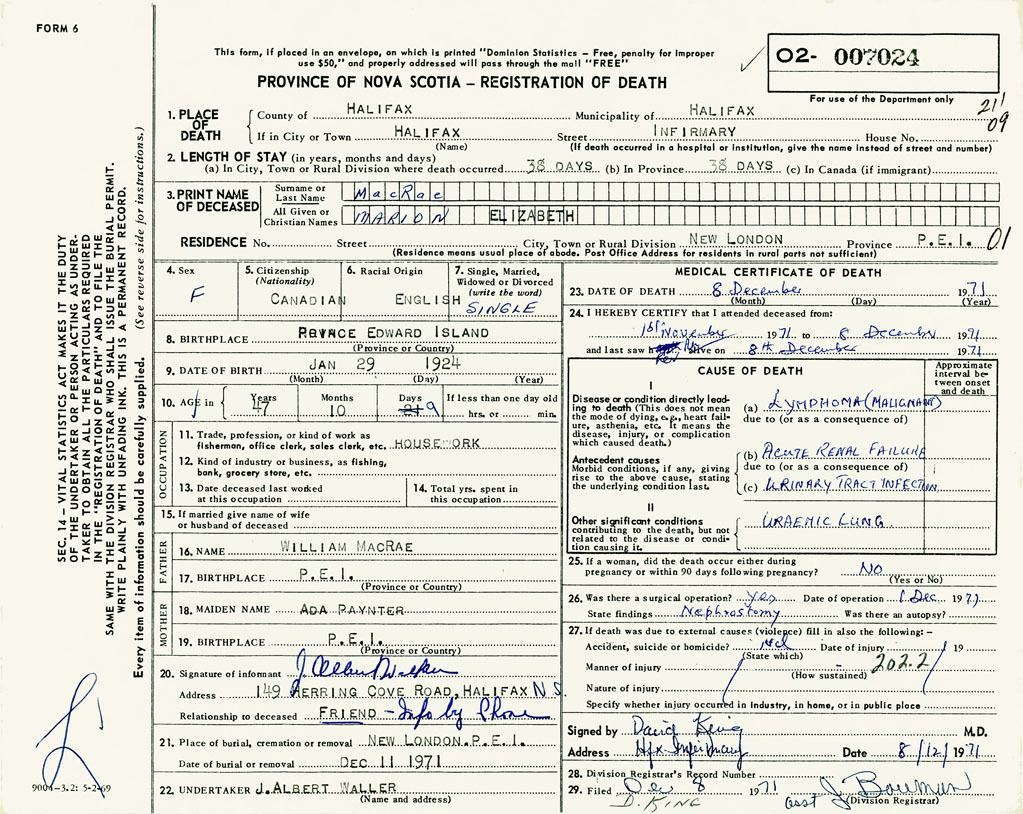 FORM 6
This form, if placed in an envelope, on which is printed "Dominion Statistics – Free, penalty for improper
use $50," and properly addressed will pass through the mail "FREE"
PROVINCE OF NOVA SCOTIA – REGISTRATION OF DEATH
02- 007024
For use of the Department only
21
09
SEC. 14 – VITAL STATISTICS ACT MAKES IT THE DUTY
OF THE UNDERTAKER OR PERSON ACTING AS UNDER-
TAKER TO OBTAIN ALL THE PARTICULARS REQUIRED
IN THE "REGISTRATION OF DEATH" AND TO FILE THE
SAME WITH THE DIVISION REGISTRAR WHO SHALL ISSUE THE BURIAL PERMIT.
WRITE PLAINLY WITH UNFADING INK. THIS IS A PERMANENT RECORD.
Every item of information should be carefully supplied. (See reverse side for instructions.)
1. PLACE OF DEATH
County of HALIFAX Municipality of HALIFAX
If in City or Town HALIFAX Street INFIRMARY House No.
(Name) (If death occurred in a hospital or institution, give the name instead of street and number)
2. LENGTH OF STAY (in years, months and days)
(a) In City, Town or Rural Division where death occurred 38 DAYS (b) In Province 38 DAYS (c) In Canada (if immigrant)
3. PRINT NAME OF DECEASED
Surname or Last Name MacRae
All Given or Christian Names MARION ELIZABETH
RESIDENCE No. Street City, Town or Rural Division NEW LONDON Province P.E.I. 01
(Residence means usual place of abode. Post Office Address for residents in rural parts not sufficient)
4. Sex F
5. Citizenship (Nationality) CANADIAN
6. Racial Origin ENGLISH
7. Single, Married, Widowed or Divorced (write the word) SINGLE
8. BIRTHPLACE PRINCE EDWARD ISLAND
(Province or Country)
9. DATE OF BIRTH JAN 29 1924
(Month) (Day) (Year)
10. AGE in Years 47 Months 10 Days 9 If less than one day old hrs. or min.
OCCUPATION
11. Trade, profession, or kind of work as
fisherman, office clerk, sales clerk, etc. HOUSEWORK
12. Kind of industry or business, as fishing,
bank, grocery store, etc.
13. Date deceased last worked at this occupation
14. Total yrs. spent in this occupation
15. If married give name of wife
or husband of deceased
FATHER
16. NAME WILLIAM MACRAE
17. BIRTHPLACE P.E.I.
(Province or Country)
MOTHER
18. MAIDEN NAME ADA PAYNTER
19. BIRTHPLACE P.E.I.
(Province or Country)
20. Signature of informant
Address 149 HERRING COVE ROAD, HALIFAX N S
Relationship to deceased FRIEND – Info by Phone
21. Place of burial, cremation or removal NEW LONDON.P.E.I.
Date of burial or removal DEC 11 1971
22. UNDERTAKER J.ALBERT WALLER
(Name and address)
9004-3.2: 5-2-69
MEDICAL CERTIFICATE OF DEATH
23. DATE OF DEATH 8 December 1971
(Month) (Day) (Year)
24. I HEREBY CERTIFY that I attended deceased from:
1st November 1971 to 8 December 1971
and last saw alive on 8th December 1971
CAUSE OF DEATH
Approximate interval be-
tween onset
and death
I
Disease or condition directly lead-
ing to death (This does not mean
the mode of dying, e.g., heart fail-
ure, asthenia, etc. It means the
disease, injury, or complication
which caused death.)
(a) LYMPHOMA (MALIGNANT)
due to (or as a consequence of)
Antecedent causes
Morbid conditions, if any, giving
rise to the above cause, stating
the underlying condition last.
(b) ACUTE RENAL FAILURE
due to (or as a consequence of)
(c) URINARY TRACT INFECTION
II
Other significant conditions
contributing to the death, but not
related to the disease or condi-
tion causing it.
URAEMIC LUNG
25. If a woman, did the death occur either during
pregnancy or within 90 days following pregnancy? NO
(Yes or No)
26. Was there a surgical operation? Yes Date of operation 1 Dec 1971
State findings Nephrostomy Was there an autopsy?
27. If death was due to external causes (violence) fill in also the following: –
Accident, suicide or homicide? Date of injury 19
(State which)
Manner of injury 202.2
(How sustained)
Nature of injury
Specify whether injury occurred in industry, in home, or in public place
Signed by David King M.D.
Address Hfx Infirmary Date 8/12/1971
28. Division Registrar's Record Number
29. Filed Dec 8 1971 asst J Bowman
D. KING (Division Registrar)